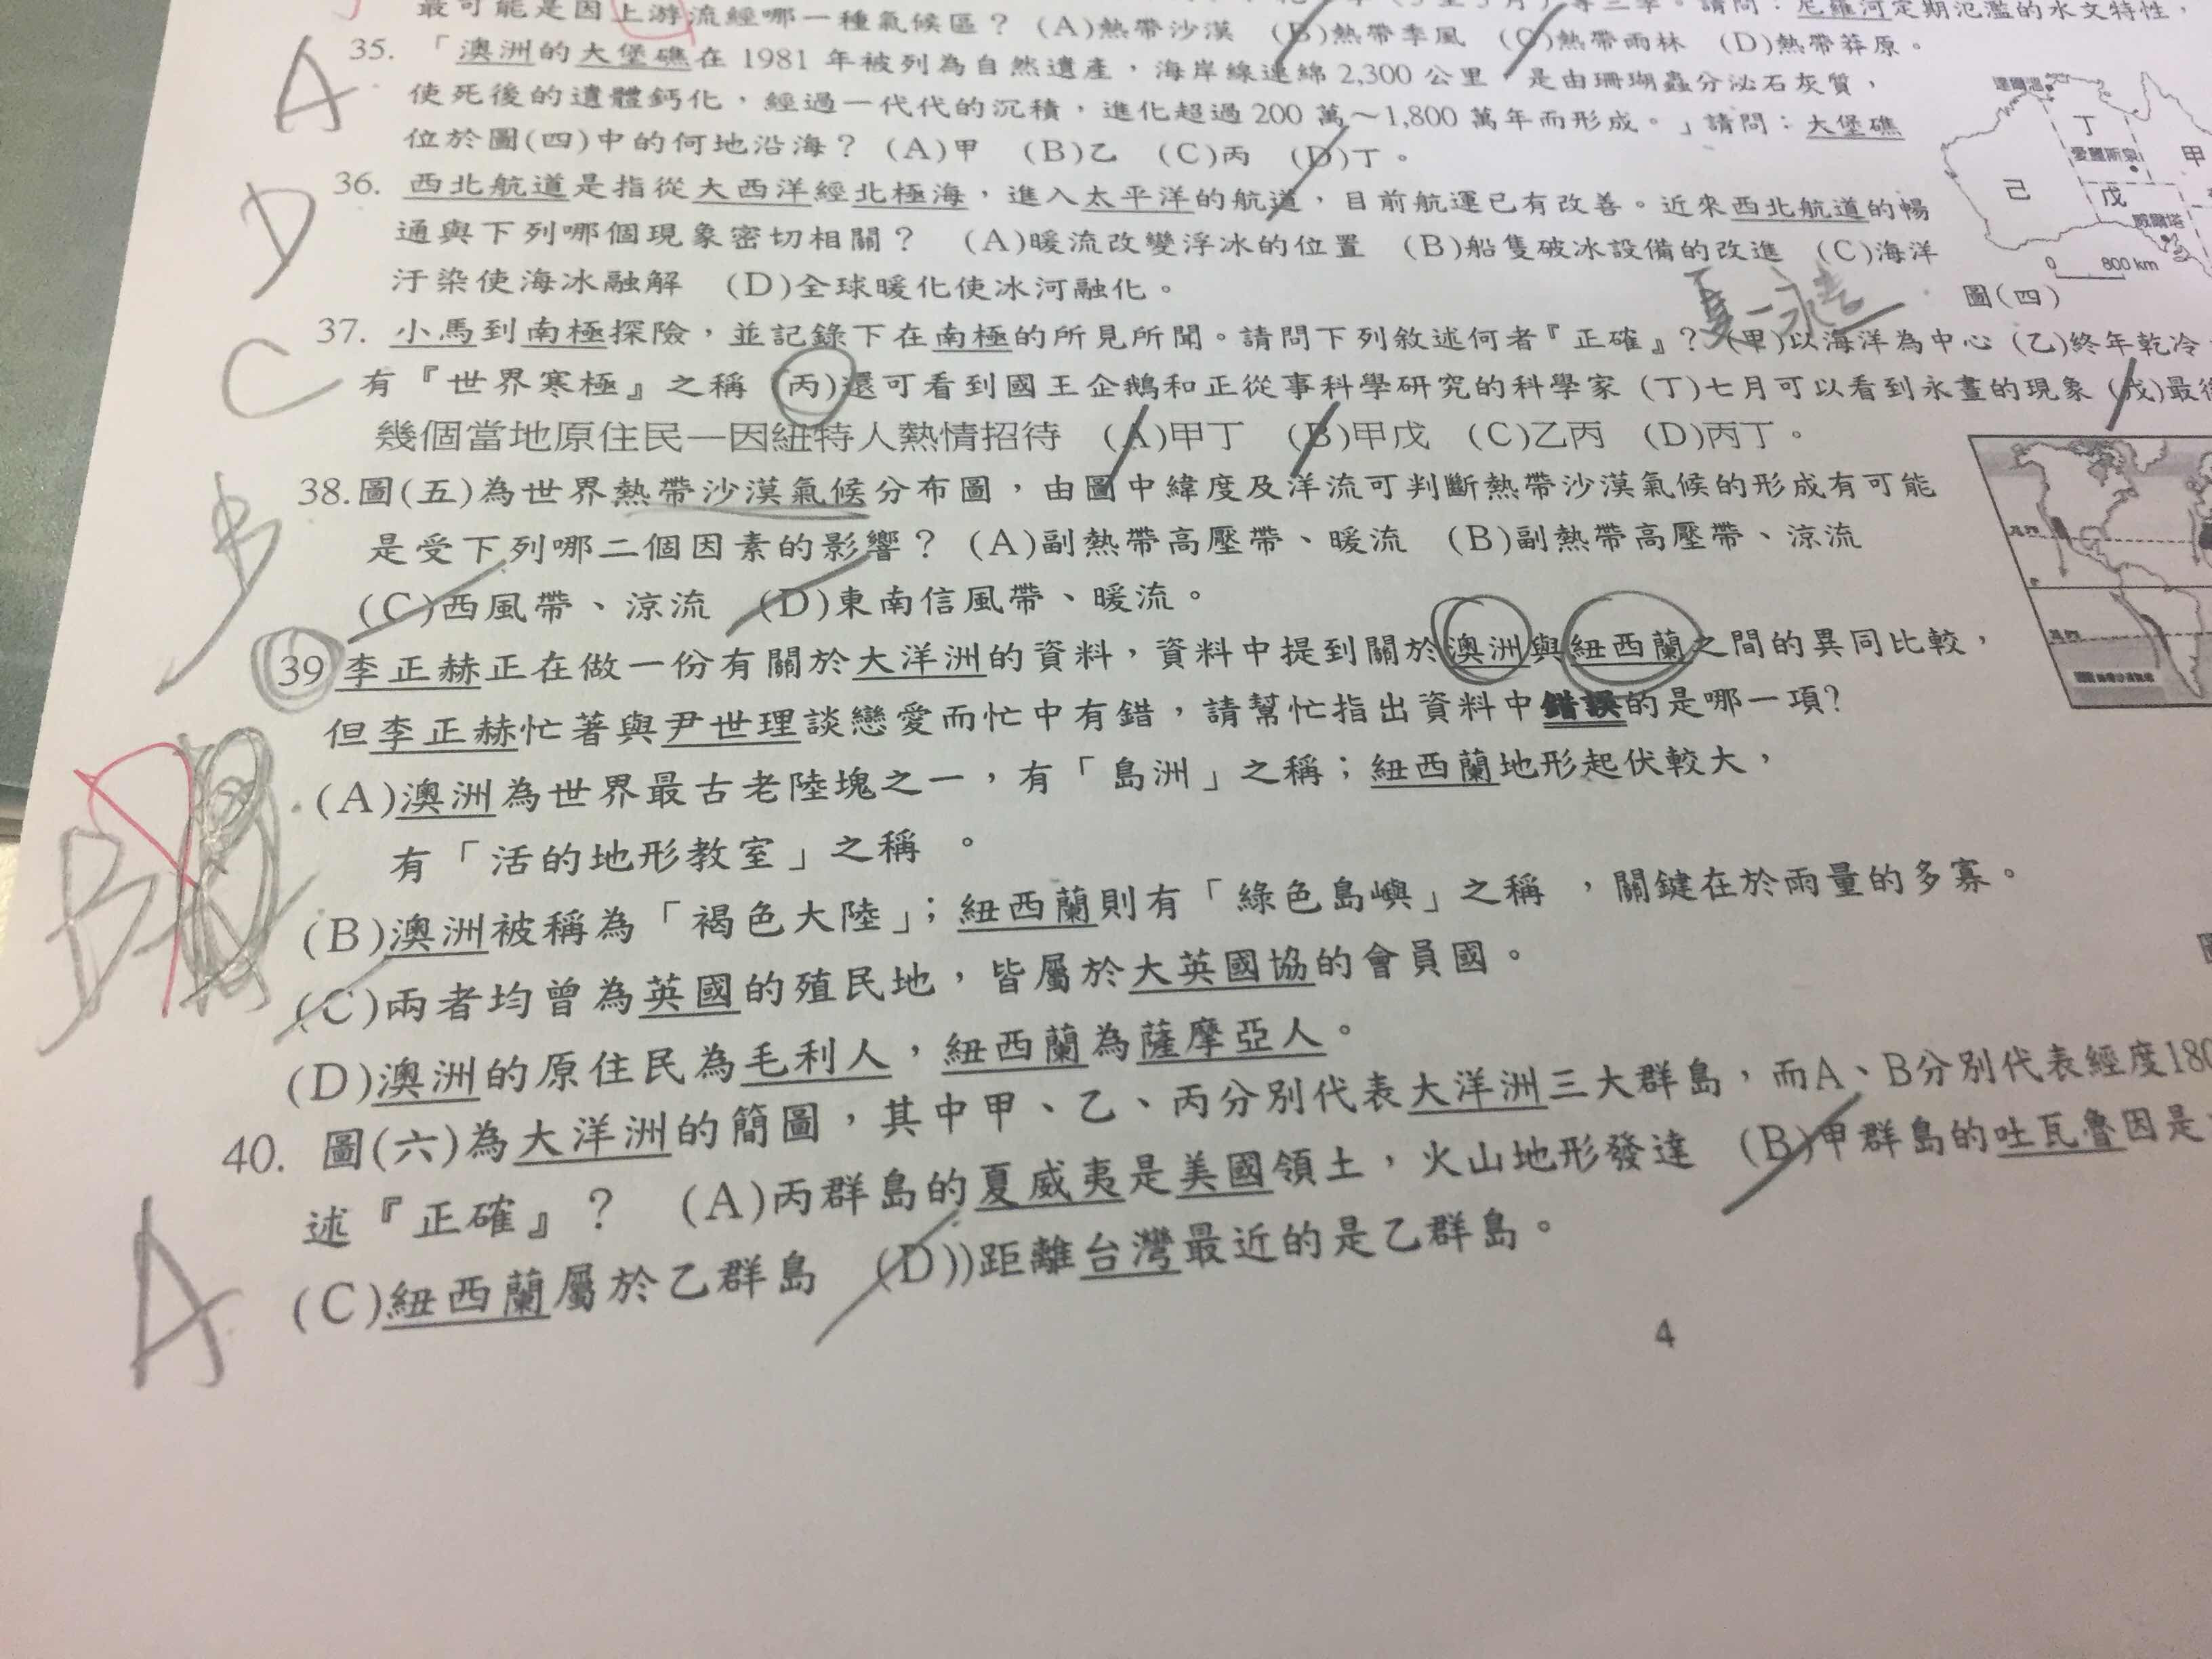 最可能是因上游流經哪一種氣候區？ (A)熱帶沙漠 (B)熱帶季風 (C)熱帶雨林 (D)熱帶莽原。
請問：尼羅河定期氾濫的水文特性，
A
35. 「澳洲的大堡礁在 1981 年被列為自然遺產，海岸線連綿 2,300 公里，是由珊瑚蟲分泌石灰質，
使死後的遺體鈣化，經過一代代的沉積，進化超過 200 萬～1,800 萬年而形成。」請問：大堡礁
位於圖(四)中的何地沿海？ (A)甲 (B)乙 (C)丙 (D)丁。
達爾文
丁
愛麗斯泉
甲
己
戊
威爾塔
0 800 km
圖(四)
D
36. 西北航道是指從大西洋經北極海，進入太平洋的航道，目前航運已有改善。近來西北航道的暢
通與下列哪個現象密切相關？ (A)暖流改變浮冰的位置 (B)船隻破冰設備的改進 (C)海洋
汙染使海冰融解 (D)全球暖化使冰河融化。
夏一永晝
C
37. 小馬到南極探險，並記錄下在南極的所見所聞。請問下列敘述何者『正確』？ (甲)以海洋為中心 (乙)終年乾冷
有『世界寒極』之稱 (丙)還可看到國王企鵝和正從事科學研究的科學家 (丁)七月可以看到永晝的現象 (戊)最後
幾個當地原住民—因紐特人熱情招待 (A)甲丁 (B)甲戊 (C)乙丙 (D)丙丁。
B
38.圖(五)為世界熱帶沙漠氣候分布圖，由圖中緯度及洋流可判斷熱帶沙漠氣候的形成有可能
是受下列哪二個因素的影響？ (A)副熱帶高壓帶、暖流 (B)副熱帶高壓帶、涼流
(C)西風帶、涼流 (D)東南信風帶、暖流。
39 李正赫正在做一份有關於大洋洲的資料，資料中提到關於澳洲與紐西蘭之間的異同比較，
但李正赫忙著與尹世理談戀愛而忙中有錯，請幫忙指出資料中錯誤的是哪一項?
B
D
(A)澳洲為世界最古老陸塊之一，有「島洲」之稱；紐西蘭地形起伏較大，
有「活的地形教室」之稱 。
(B)澳洲被稱為「褐色大陸」；紐西蘭則有「綠色島嶼」之稱 ，關鍵在於雨量的多寡。
(C)兩者均曾為英國的殖民地，皆屬於大英國協的會員國。
(D)澳洲的原住民為毛利人，紐西蘭為薩摩亞人。
A
40. 圖(六)為大洋洲的簡圖，其中甲、乙、丙分別代表大洋洲三大群島，而A、B分別代表經度180
述『正確』？ (A)丙群島的夏威夷是美國領土，火山地形發達 (B)甲群島的吐瓦魯因是
(C)紐西蘭屬於乙群島 (D))距離台灣最近的是乙群島。
4